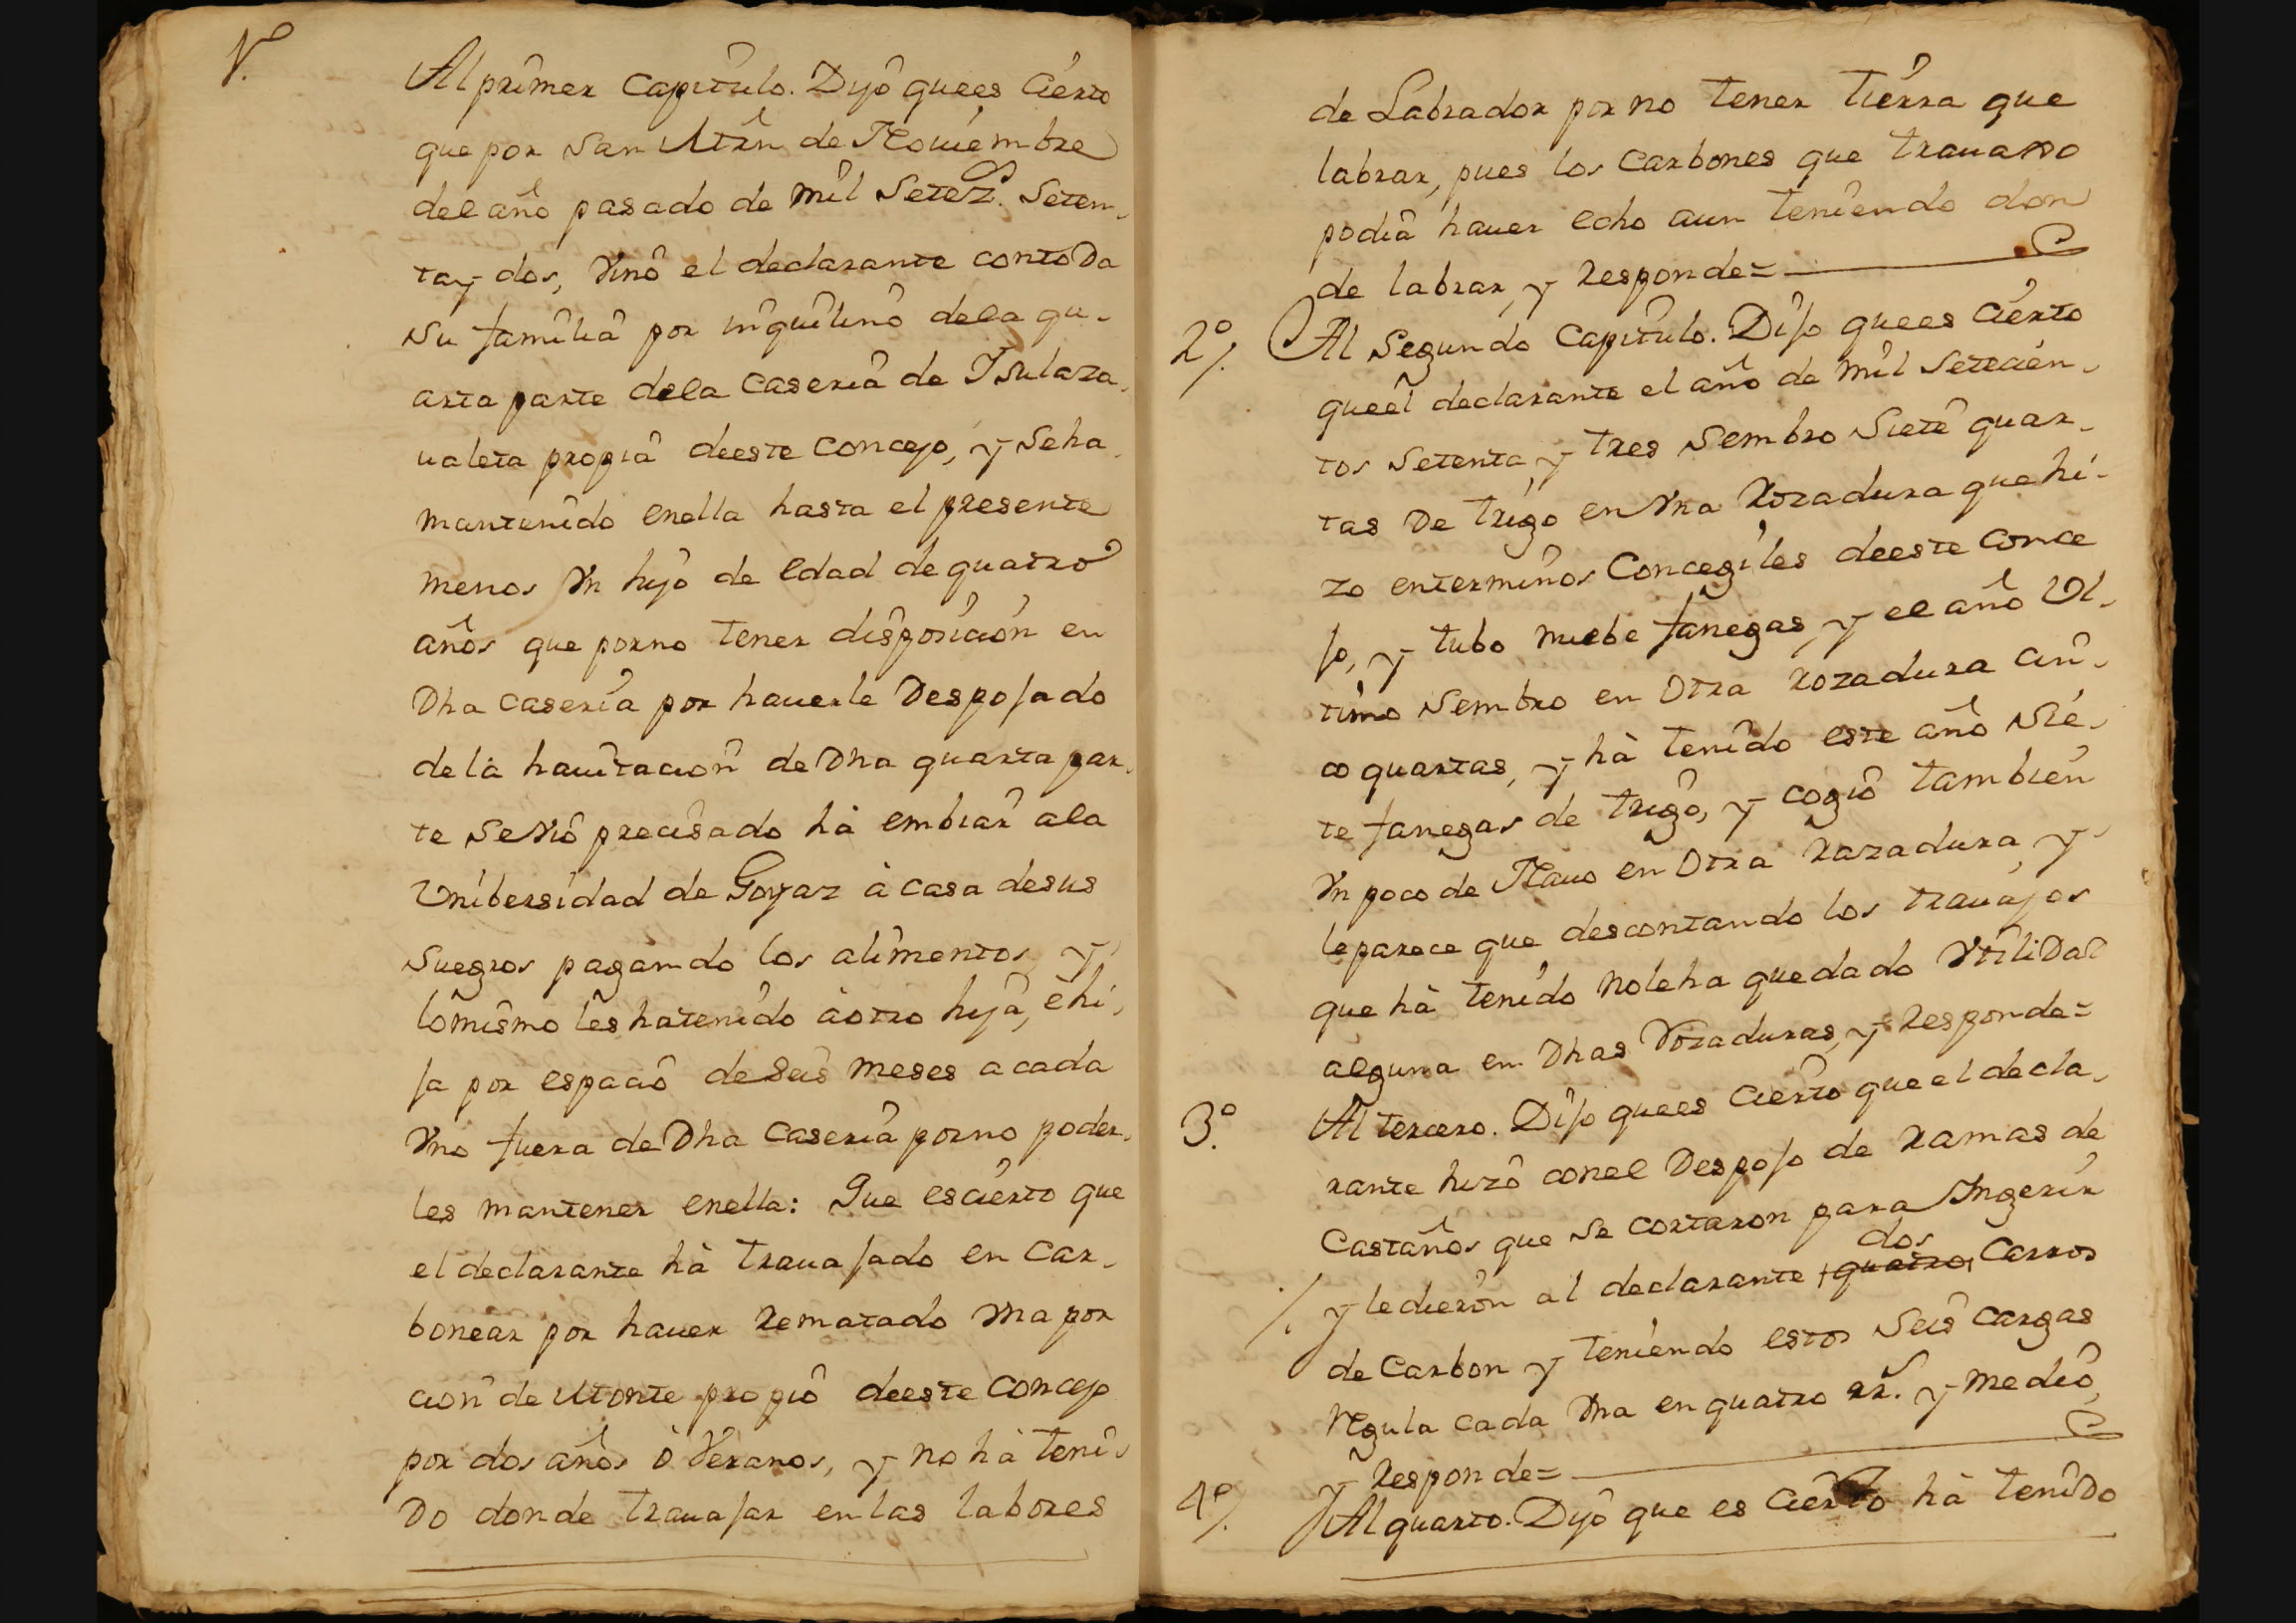 1º
Al primer Capitulo. Dijo que es Cierto
que por San Mrñ de Noviembre
del año pasado de mil Setez.s Seten-
ta y dos, Vino el declarante con toda
su familia por inquilino de la qu-
arta parte de la Caseria de Ysulaza-
ualeta propia de este Concejo, y se ha
mantenido en ella hasta el presente
menos Vn hijo de edad de quatro
años que por no tener disposicion en
Dha caseria por hauerle Despojado
de la hauitacion de Dha quarta par-
te se vió precisado hà embiar a la
Vnibersidad de Goyaz à casa de sus
suegros pagando los alimentos, y
lo mismo les ha tenido à otro hijo, è hi-
ja por espacio de seis meses a cada
Vno fuera de Dha Caseria por no poder-
les mantener en ella: Que es cierto que
el declarante hà trauajado en Car-
bonear por hauer Rematado Vna por
cion de Monte propio de este Concejo
por dos años ò Veranos, y no hà teni-
Do donde trauajar en las labores
de Labrador por no tener tierra que
labrar, pues los Carbones que trauajo
podia hauer echo aun teniendo don
de labrar, y Responde=
2º/. Al Segundo Capitulo. Dijo que es Cierto
que el declarante el año de mil Setecien-
tos Setenta y tres Sembro Siete quar-
tas De trigo en Vna Rozadura que hi-
zo en terminos Concegiles de este Conce
jo, y tubo nuebe fanegas, y el año Vl-
timo Sembro en Otra rozadura cin-
co quartas, y hà tenido este año Sie-
te fanegas de trigo, y cogio tambien
Vn poco de Nauo en Otra Razadura, y
le parece que descontando los trauajos
que hà tenido no le ha quedado Vtilidad
alguna en Dhas Rozaduras, y Responde=
3º. Al tercero. Dijo que es Cierto que el decla-
rante hizo con el Despojo de Ramas de
Castaños que se cortaron para Yngerir
dos
/. y le dieron al declarante quatro Carros
de Carbon y teniendo estos Seis Cargas
Regula cada Vna en quatro rr.s y medio,
y Responde=
4º/. Al quarto. Dijo que es Cierto hà tenido